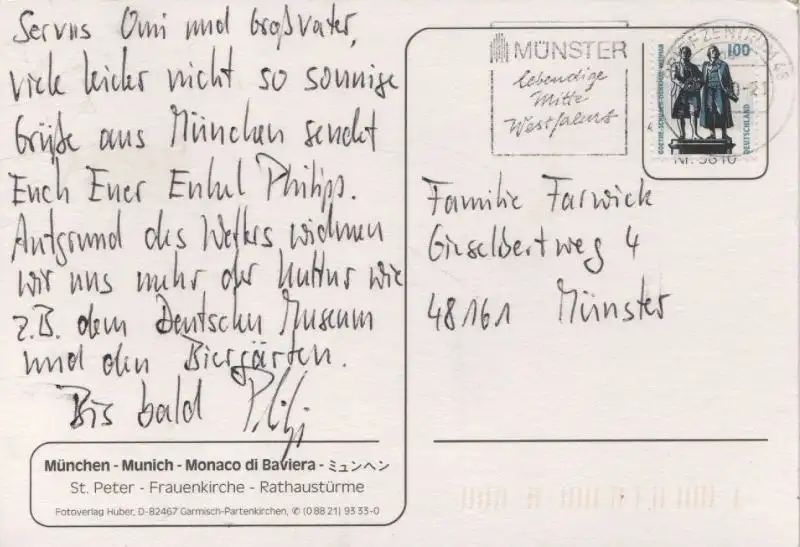 Servus Omi und Großvater,
viele leider nicht so sonnige
Grüße aus München sendet
Euch Euer Enkel Philipp.
Aufgrund des Wetters widmen
wir uns mehr der Kultur wie
z.B. dem Deutschen Museum
und den Biergärten.
Bis bald
München - Munich - Monaco di Baviera - ミュンヘン
St. Peter - Frauenkirche - Rathaustürme
Fotoverlag Huber, D-82467 Garmisch-Partenkirchen, ✆ (0 88 21) 93 33-0
MÜNSTER
lebendige
Mitte
Westfalens
BRIEFZENTRUM 48
100
DEUTSCHLAND
GOETHE-SCHILLER-DENKMAL WEIMAR
Familie Farwick
Giselbertweg 4
48161 Münster